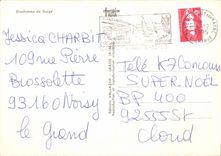 Bonhomme de Neige
Jessica CHARBIT
109 rue Pierre
Brossolette
93160 Noisy
le Grand
Télé K7 Concours
SUPER NOËL
BP 400
92555 St
Cloud